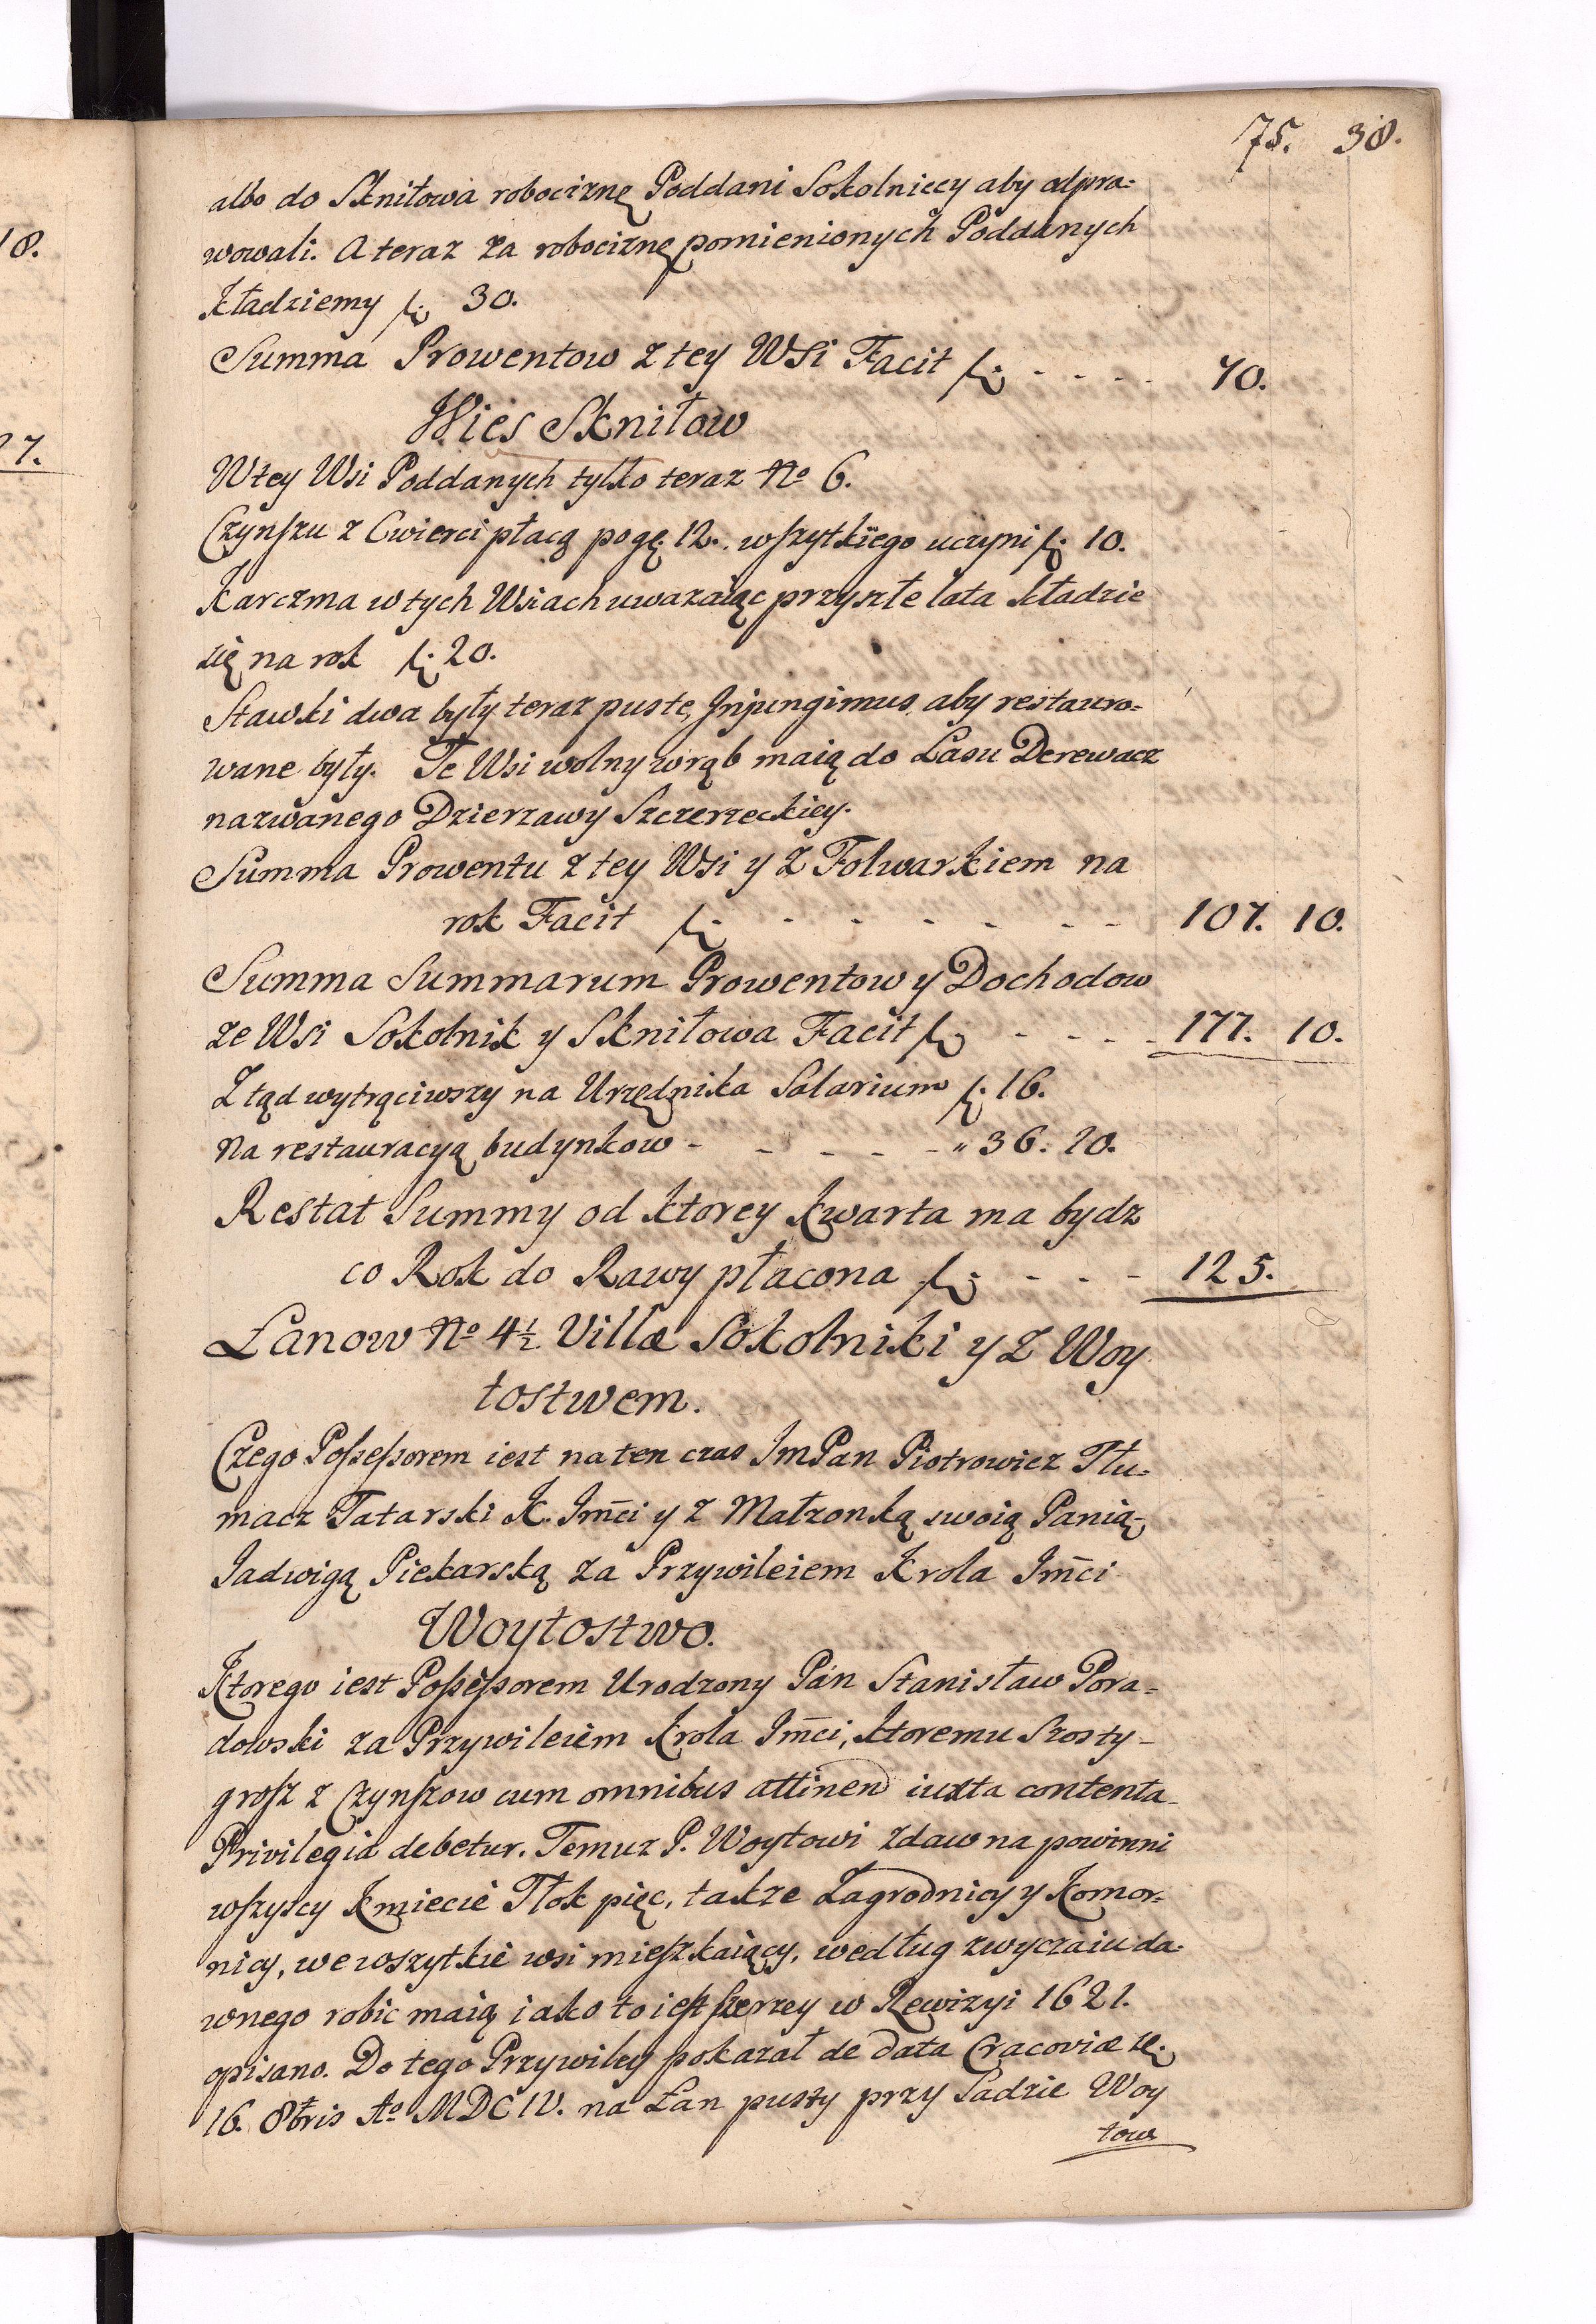 75. 38.
albo do Skniłowa robociznę Poddani Sokolniccy aby odpra=
wowali. A teraz za robociznę pomienionych Poddanych
kładziemy fl: 30.
Summa Prowentow z tey Wsi Facit fl: - - - - 70.
Wies Skniłow
W tey Wsi Poddanych tylko teraz No 6.
Czynszu z Cwierci płacą po gr. 12. wszytkiego uczyni fl: 10.
Karczma w tych Wsiach uwazaiąc przyszłe lata kładzie
się na rok fl: 20.
Stawki dwa były teraz puste, Injungimus aby restauro=
wane były. Te Wsi wolny wrąb maią do Lasu Derewacz
nazwanego Dzierzawy Szczerzeckiey.
Summa Prowentu z tey Wsi y z Folwarkiem na
rok Facit fl: - - - - - - 107. 10.
Summa Summarum Prowentow y Dochodow
ze Wsi Sokolnik y Skniłowa Facit fl: - - - - 177. 10.
Z tąd wytrąciwszy na Urzędnika Salarium fl: 16.
Na restauracyą budynkow - - - - - „ 36. 10.
Restat Summy od ktorey kwarta ma bydz
co Rok do Rawy płacona fl: - - - 125.
Łanow No 4½ Villæ Sokolniki y z Woy
tostwem.
Czego Possessorem iest na ten czas ImPan Piotrowicz Tłu=
macz Tatarski K. Jmci y z Małzonką swoią Panią
Jadwigą Piekarską za Przywileiem Krola Jmci
Woytostwo.
Ktorego iest Possessorem Urodzony Pan Stanisław Pora=
dowski za Przywileiem Krola Jmci, ktoremu Szosty-
grosz z Czynszow cum omnibus attinen iuxta contenta
Privilegia debetur. Temuz P. Woytowi zdawna powinni
wszyscy Kmiecie Tłok pięc, takze Zagrodnicy y Komor=
nicy, we wszytkie wsi mieszkaiący, według zwyczaiu da=
wnego robic maią iako to iest szerzey w Rewizyi 1621.
opisano. Do tego Przywiley pokazał de data Cracoviæ
16. 8bris Ao MDCIV. na Łan pusty przy Sadzie Woy
tow
18.
27.